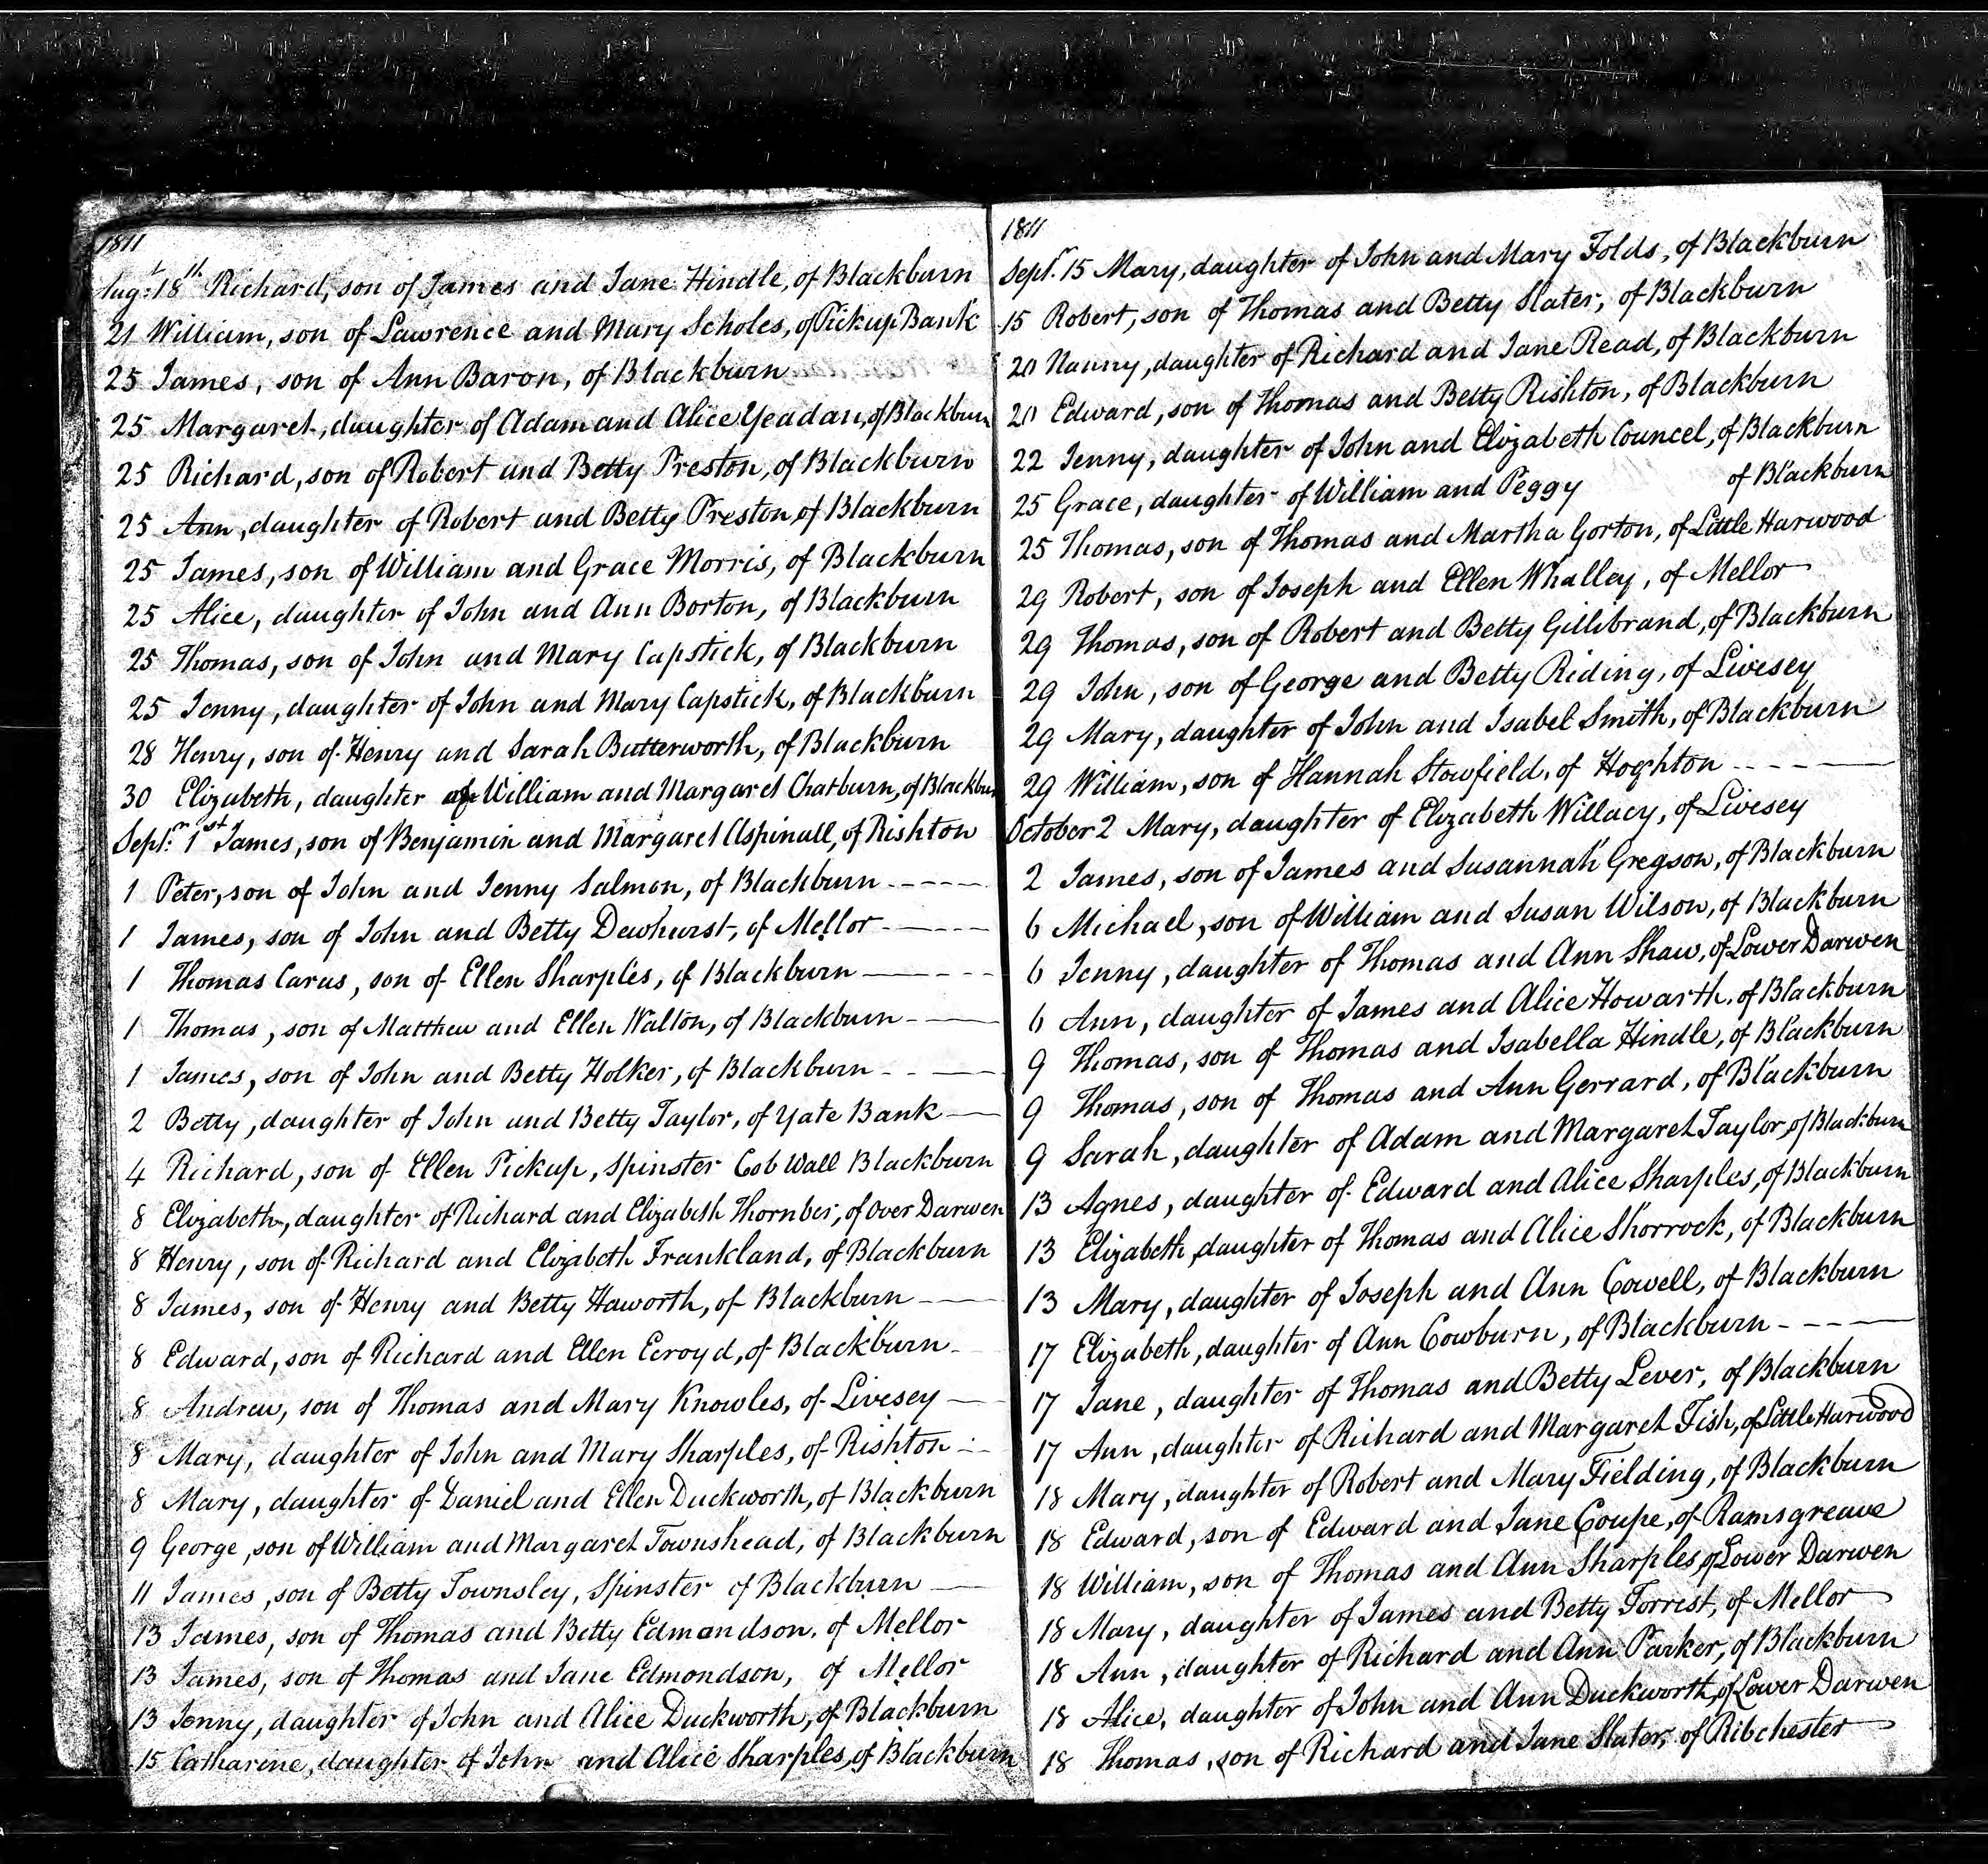 1811
Augt. 18th Richard, son of James and Jane Hindle, of Blackburn
21 William, son of Lawrence and Mary Scholes, of Pickup Bank
25 James, son of Ann Baron, of Blackburn
25 Margaret, daughter of Adam and Alice Yeadan, of Blackburn
25 Richard, son of Robert and Betty Preston, of Blackburn
25 Ann, daughter of Robert and Betty Preston of Blackburn
25 James, son of William and Grace Morris, of Blackburn
25 Alice, daughter of John and Ann Borton, of Blackburn
25 Thomas, son of John and Mary Capstick, of Blackburn
25 Jenny, daughter of John and Mary Capstick, of Blackburn
28 Henry, son of Henry and Sarah Butterworth, of Blackburn
30 Elizabeth, daughter of William and Margaret Chatburn, of Blackbur
Septr. 1st James, son of Benjamin and Margaret Aspinall, of Rishton
1 Peter, son of John and Jenny Salmon, of Blackburn
1 James, son of John and Betty Dewhurst, of Mellor
1 Thomas Carus, son of Ellen Sharples, of Blackburn
1 Thomas, son of Matthew and Ellen Walton, of Blackburn
1 James, son of John and Betty Holker, of Blackburn
2 Betty, daughter of John and Betty Taylor, of Yate Bank
4 Richard, son of Ellen Pickup, Spinster Cob Wall Blackburn
8 Elizabeth, daughter of Richard and Elizabeth Thornber, of Over Darwen
8 Henry, son of Richard and Elizabeth Frankland, of Blackburn
8 James, son of Henry and Betty Haworth, of Blackburn
8 Edward, son of Richard and Ellen Ecroyd, of Blackburn
8 Andrew, son of Thomas and Mary Knowles, of Livesey
8 Mary, daughter of John and Mary Sharples, of Rishton
8 Mary, daughter of Daniel and Ellen Duckworth, of Blackburn
9 George, son of William and Margaret Townshead, of Blackburn
11 James, son of Betty Townsley, Spinster of Blackburn
13 James, son of Thomas and Betty Edmondson, of Mellor
13 James, son of Thomas and Jane Edmondson, of Mellor
13 Jenny, daughter of John and Alice Duckworth, of Blackburn
15 Catharine, daughter of John and Alice Sharples, of Blackburn
1811
Septr. 15 Mary, daughter of John and Mary Folds, of Blackburn
15 Robert, son of Thomas and Betty Slater, of Blackburn
20 Nanny, daughter of Richard and Jane Read, of Blackburn
20 Edward, son of Thomas and Betty Rishton, of Blackburn
22 Jenny, daughter of John and Elizabeth Councel, of Blackburn
25 Grace, daughter of William and Peggy of Blackburn
25 Thomas, son of Thomas and Martha Gorton, of Little Harwood
29 Robert, son of Joseph and Ellen Whalley, of Mellor
29 Thomas, son of Robert and Betty Gillibrand, of Blackburn
29 John, son of George and Betty Riding, of Livesey
29 Mary, daughter of John and Isabel Smith, of Blackburn
29 William, son of Hannah Stowfield, of Hoghton
October 2 Mary, daughter of Elizabeth Willacy, of Livesey
2 James, son of James and Susannah Gregson, of Blackburn
6 Michael, son of William and Susan Wilson, of Blackburn
6 Jenny, daughter of Thomas and Ann Shaw, of Lower Darwen
6 Ann, daughter of James and Alice Howarth, of Blackburn
9 Thomas, son of Thomas and Isabella Hindle, of Blackburn
9 Thomas, son of Thomas and Ann Gerrard, of Blackburn
9 Sarah, daughter of Adam and Margaret Taylor, of Blackburn
13 Agnes, daughter of Edward and Alice Sharples, of Blackburn
13 Elizabeth, daughter of Thomas and Alice Shorrock, of Blackburn
13 Mary, daughter of Joseph and Ann Cowell, of Blackburn
17 Elizabeth, daughter of Ann Cowburn, of Blackburn
17 Jane, daughter of Thomas and Betty Lever, of Blackburn
17 Ann, daughter of Richard and Margaret Fish, of Little Harwood
18 Mary, daughter of Robert and Mary Fielding, of Blackburn
18 Edward, son of Edward and Jane Coupe, of Ramsgreave
18 William, son of Thomas and Ann Sharples, of Lower Darwen
18 Mary, daughter of James and Betty Forrest, of Mellor
18 Ann, daughter of Richard and Ann Parker, of Blackburn
18 Alice, daughter of John and Ann Duckworth, of Lower Darwen
18 Thomas, son of Richard and Jane Slater, of Ribchester